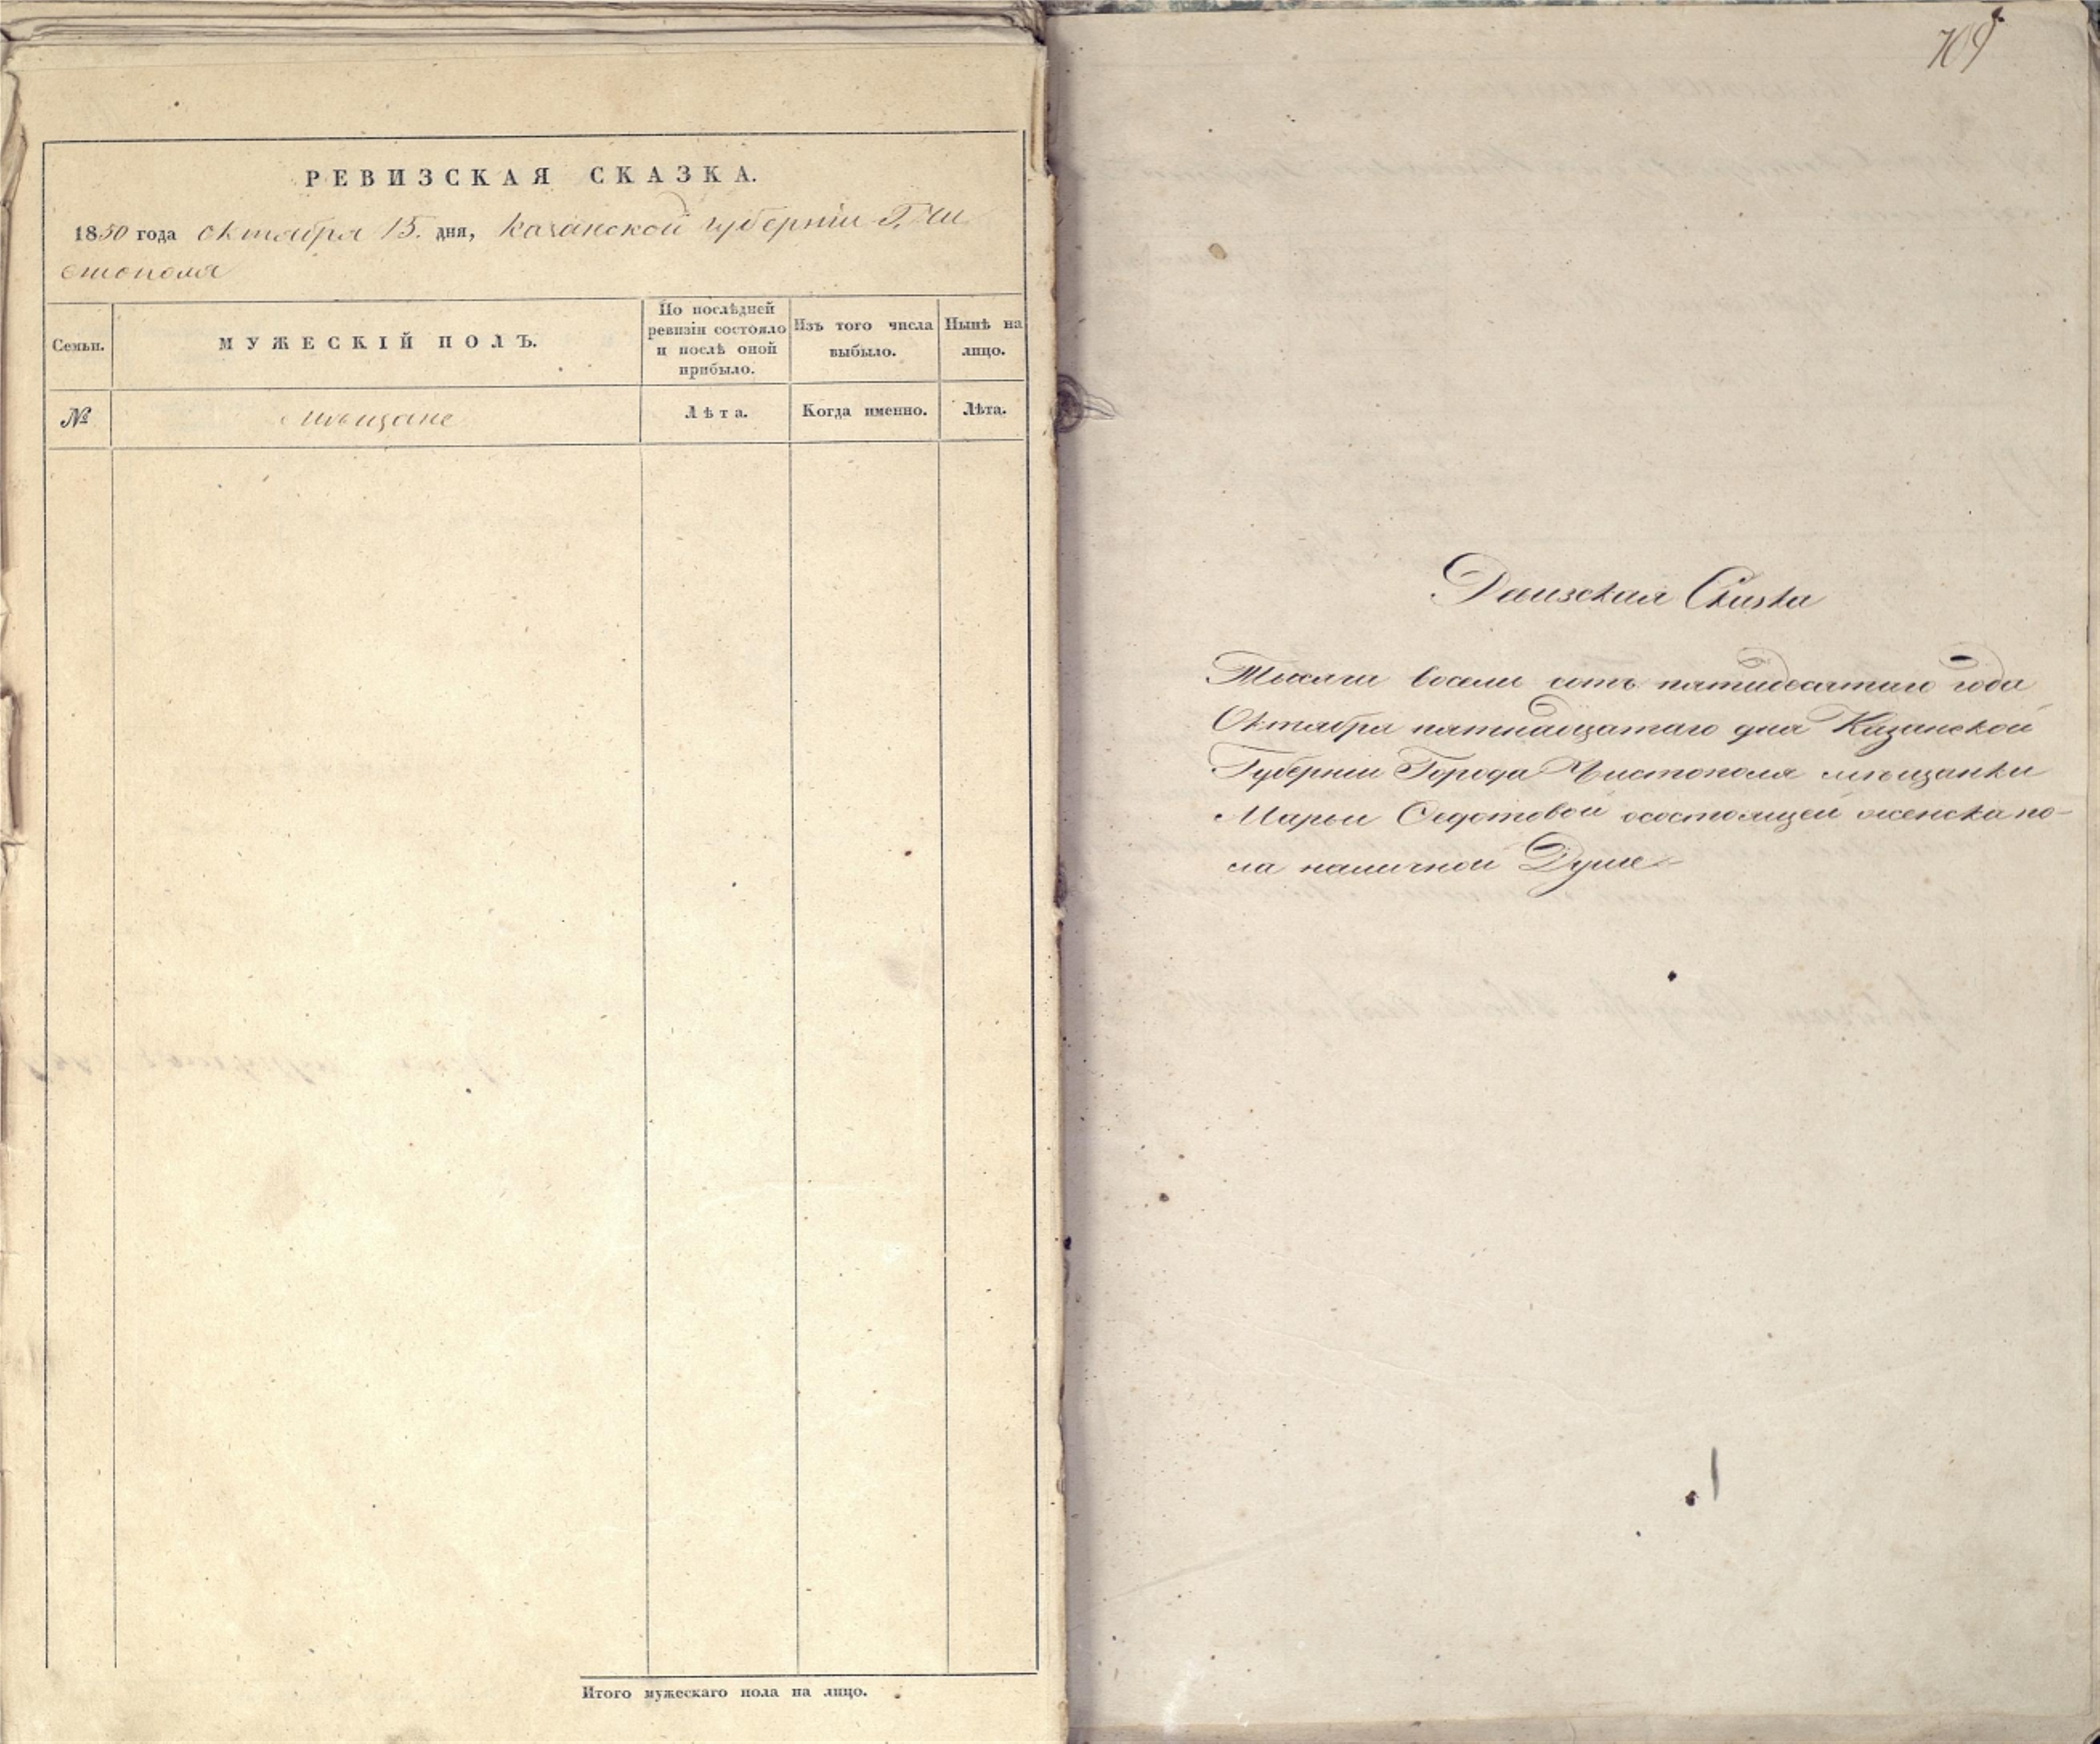 РЕВИЗСКАЯ СКАЗКА.
1850 года октября 15. дня, казанской губерніи Г. Чи
стополя
Семьи.
МУЖЕСКІЙ ПОЛЪ.
По послѣдней
ревизіи состояло
и послѣ оной
прибыло.
Изъ того числа
выбыло.
Нынѣ на
лицо.
№
мѣщане
Лѣта.
Когда именно.
Лѣта.
Итого мужескаго пола на лицо.
709
Ревизская Скаска
Тысячи восемь сотъ пятидесятаго года
Октября пятнадцатаго дня Казанской
Губерніи Города Чистополя мѣщанки
Марьи Федотовой осостоящей женска по-
ла наличной Душе